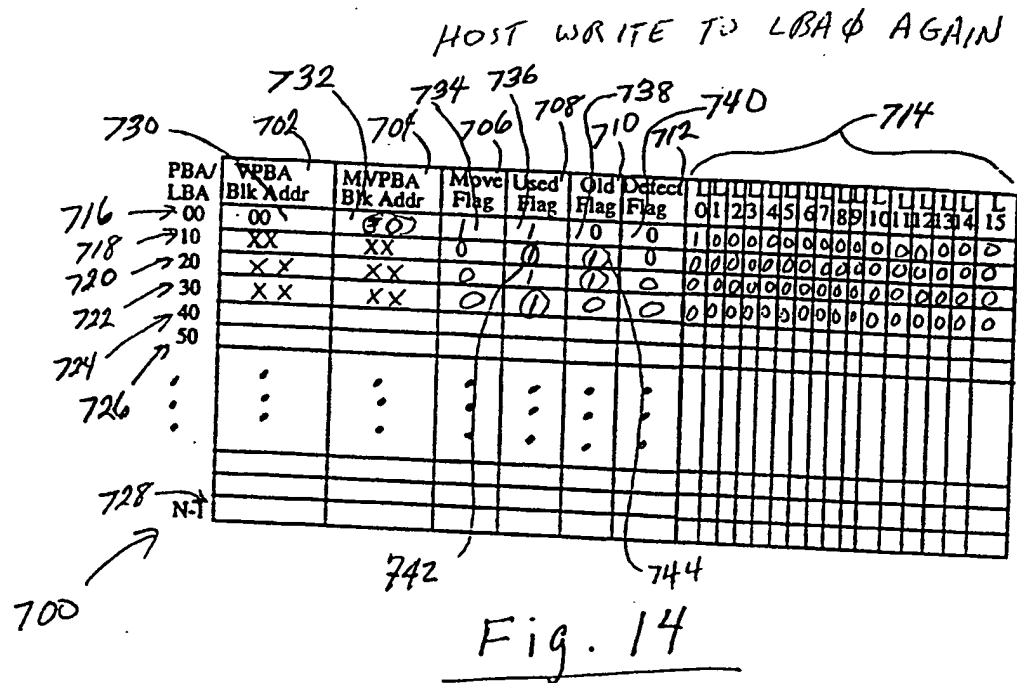 HOST WRITE TO LBAφ AGAIN
732 734 736 738 740
730 702 704 706 708 710 712 714
PBA/ LBA VPBA Blk Addr MVPBA Blk Addr Move Flag Used Flag Old Flag Defect Flag L0 L1 L2 L3 L4 L5 L6 L7 L8 L9 L10 L11 L12 L13 L14 L15
716 00 00 30 1 1 0 0 1 0 0 0 0 0 0 0 0 0 0 0 0 0 0 0
718 10 XX XX 0 0 1 0 0 0 0 0 0 0 0 0 0 0 0 0 0 0 0 0
720 20 XX XX 0 1 1 0 0 0 0 0 0 0 0 0 0 0 0 0 0 0 0 0
722 30 XX XX 0 1 0 0 0 0 0 0 0 0 0 0 0 0 0 0 0 0 0 0
724 40
726 50
728 N-T
700 742 744
Fig. 14